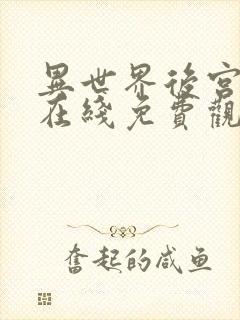 異世界後宮
在綫免費觀
奮起的咸鱼